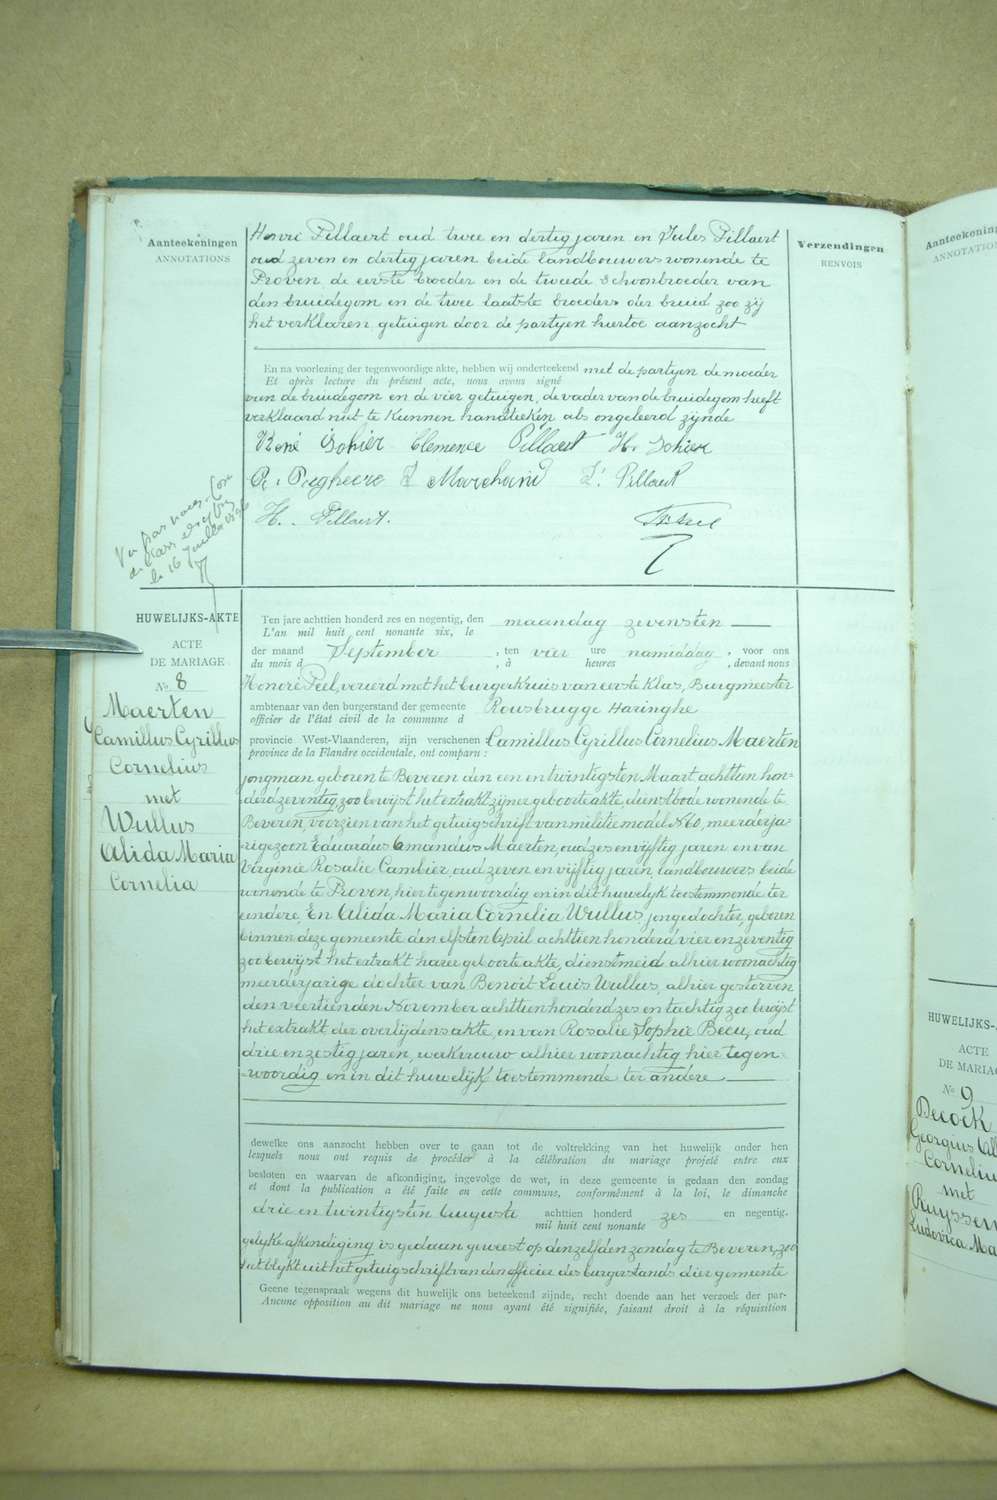 Aanteekeningen
ANNOTATIONS
Henri Pillaert oud twee en dertig jaren en Jules Pillaert
oud zeven en dertig jaren beide landbouwers wonende te
Proven, de eerste broeder en de tweede schoonbroeder van
den bruidegom en de twee laatste broeders der bruid zoo zij
het verklaren, getuigen door de partyen hiertoe aanzocht
Verzendingen
RENVOIS
En na voorlezing der tegenwoordige akte, hebben wij onderteekend met de partyen de moeder
Et après lecture du présent acte, nous avons signé
van de bruidegom en de vier getuigen, de vader van de bruidegom heeft
verklaard niet te kunnen handteeken als ongeleerd zijnde
René Sohier Clemence Pillaert H. Sohier
Marchand J. Pillaert
H. Pillaert.
Vu par nous
le 16 Juillet
HUWELIJKS-AKTE
ACTE
DE MARIAGE
No. 8
Maerten
Camillus Cyrillus
Cornelius
met
Wullus
Alida Maria
Cornelia
Ten jare achttien honderd zes en negentig, den maandag zevensten
L'an mil huit cent nonante six, le
der maand September , ten vier ure namiddag , voor ons
du mois d , à heures , devant nous
Honoré Peel, vereerd met het burgerkruis van eerste klas, Burgmeester
ambtenaar van den burgerstand der gemeente Rousbrugge Haringhe
officier de l'état civil de la commune d
provincie West-Vlaanderen, zijn verschenen Camillus Cyrillus Cornelius Maerten
province de la Flandre occidentale, ont comparu :
jongman geboren te Beveren den een en twintigsten Maart achttien hon-
derd zeventig zoo bewijst het extrakt zijner geboorteakte, dienstbode wonende te
Beveren, voorzien van het getuigschrift van militie model N 60, meerderja-
rige zoon Eduardus Amandus Maerten, oud zes en vijftig jaren en van
Virginie Rosalie Cambier oud zeven en vijftig jaren, landbouwers beide
wonende te Proven, hier tegenwoordig en in dit huwelyk toestemmende ter
eendere. En Alida Maria Cornelia Wullus, jongedochter, geboren
binnen deze gemeente den elfsten April achttien honderd vier en zeventig
zoo bewijst het extrakt harer geboorteakte, dienstmeid alhier woonachtig
meerderjarige dochter van Benoit Louis Wullus, alhier gestorven
den veertienden November achttien honderd zes en tachtig zoo bewijst
het extrakt der overlijdensakte, en van Rosalie Sophie Becu, oud
drie en zestig jaren, werkvrouw alhier woonachtig hier tegen-
woordig en in dit huwelijk toestemmende ter andere
dewelke ons aanzocht hebben over te gaan tot de voltrekking van het huwelijk onder hen
lesquels nous ont requis de procéder à la célébration du mariage projeté entre eux
besloten en waarvan de afkondiging, ingevolge de wet, in deze gemeente is gedaan den zondag
et dont la publication a été faite en cette commune, conformément à la loi, le dimanche
drie en twintigsten Auguste achttien honderd zes en negentig.
mil huit cent nonante
gelyke afkondiging is gedaan geweest op denzelfden zondag te Beveren, zoo
het blykt uit het getuigschrift van den officier des burgerstands dier gemeente
Geene tegenspraak wegens dit huwelijk ons beteekend zijnde, recht doende aan het verzoek der par-
Aucune opposition au dit mariage ne nous ayant été signifiée, faisant droit à la réquisition
Aanteekening
ANNOTATIO
HUWELIJKS-
ACTE
DE MARIA
No 9
Decock
Georgius
Corneliu
met
Ruyssen
Ludovica Ma